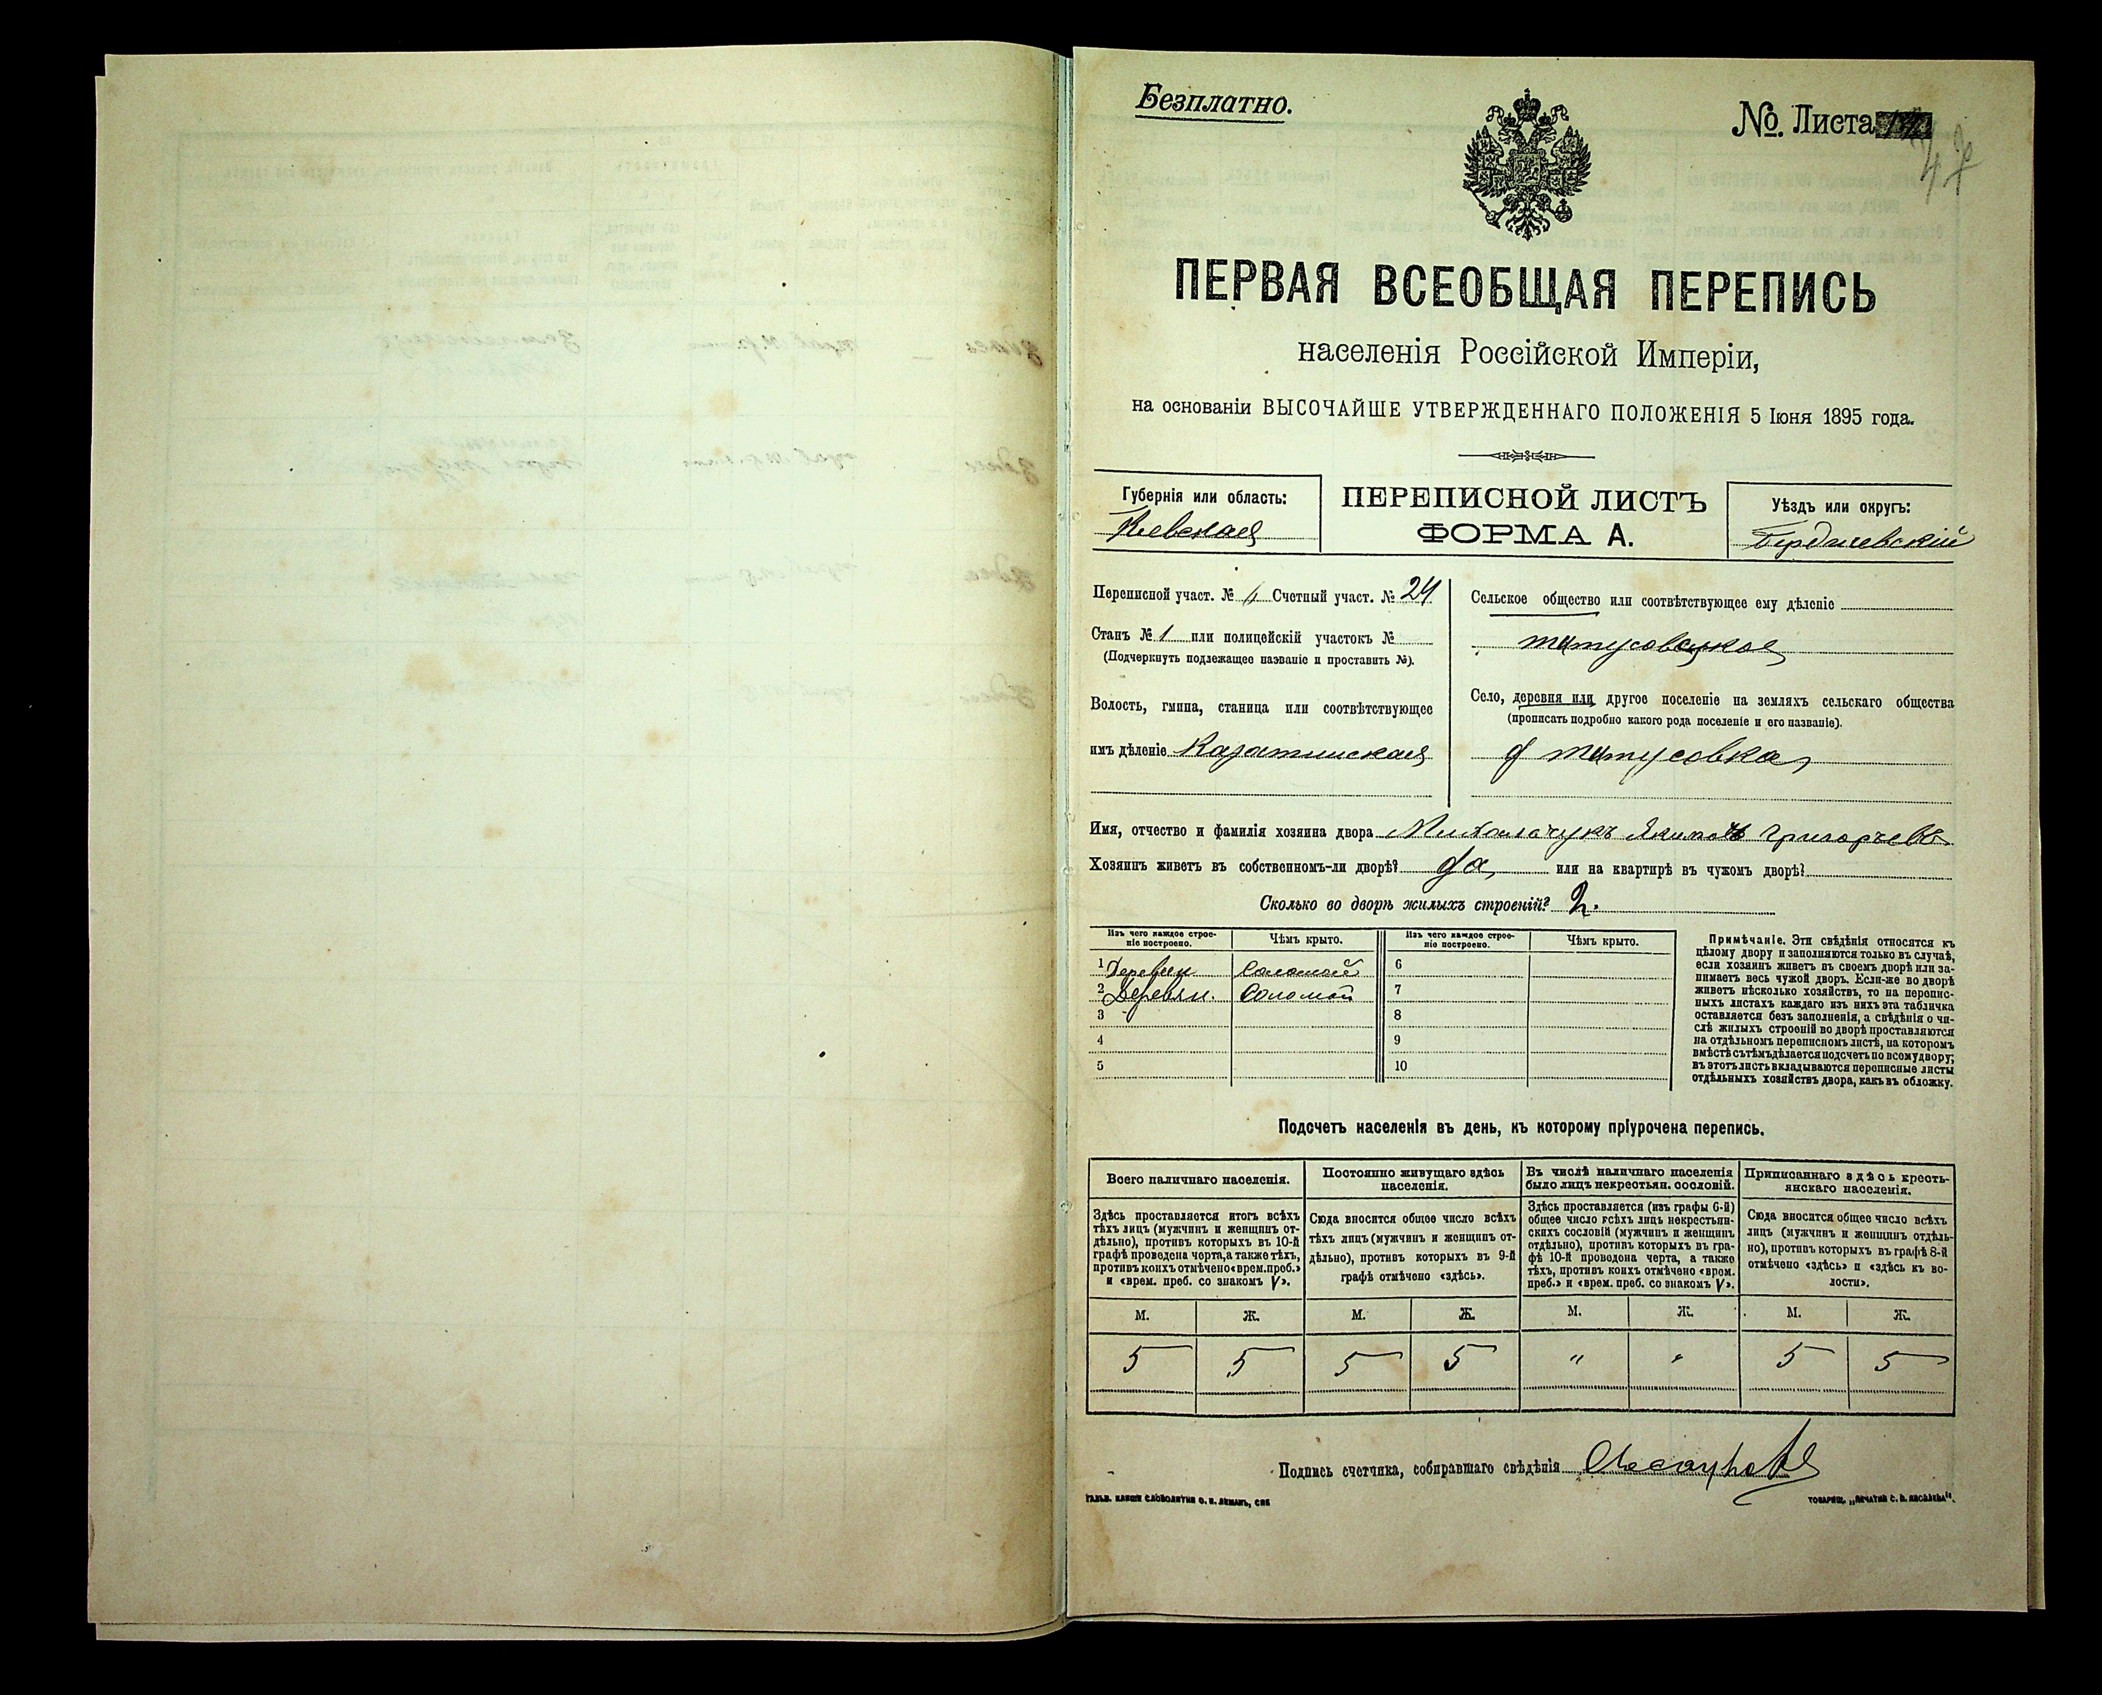 Безплатно.
№ Листа
47
ПЕРВАЯ ВСЕОБЩАЯ ПЕРЕПИСЬ
населенія Россійской Имперіи,
на основаніи ВЫСОЧАЙШЕ УТВЕРЖДЕННАГО ПОЛОЖЕНІЯ 5 Іюня 1895 года.
Губернія или область:
Кіевская
ПЕРЕПИСНОЙ ЛИСТЪ
ФОРМА А.
Уѣздъ или округъ:
Бердичевскій
Переписной участ. № Счетный участ. № 24
Станъ № 1 или полицейскій участокъ №
(Подчеркнуть подлежащее названіе и проставить №).
Волость, гмина, станица или соотвѣтствующее
имъ дѣленіе Казатинская
Сельское общество или соотвѣтствующее ему дѣленіе
титусовецкое
Село, деревня или другое поселеніе на земляхъ сельскаго общества
(прописать подробно какого рода поселеніе и его названіе).
д титусовка
Имя, отчество и фамилія хозяина двора Григорьевъ
Хозяинъ живетъ въ собственномъ-ли дворѣ? да или на квартирѣ въ чужомъ дворѣ?
Сколько во дворѣ жилыхъ строеній? 2.
Изъ чего каждое строе-
ніе построено.
Чѣмъ крыто.
Изъ чего каждое строе-
ніе построено.
Чѣмъ крыто.
1 Деревян Соломой 6
2 Деревян. Соломой 7
3 8
4 9
5 10
Примѣчаніе. Эти свѣдѣнія относятся къ
цѣлому двору и заполняются только въ случаѣ,
если хозяинъ живетъ въ своемъ дворѣ или за-
нимаетъ весь чужой дворъ. Если-же во дворѣ
живетъ нѣсколько хозяйствъ, то на перепис-
ныхъ листахъ каждаго изъ нихъ эта табличка
оставляется безъ заполненія, а свѣдѣнія о чи-
слѣ жилыхъ строеній во дворѣ проставляются
на отдѣльномъ переписномъ листѣ, на которомъ
вмѣстѣ съ тѣмъ дѣлается подсчетъ по всему двору;
въ этотъ листъ вкладываются переписные листы
отдѣльныхъ хозяйствъ двора, какъ въ обложку.
Подсчетъ населенія въ день, къ которому пріурочена перепись.
Всего наличнаго населенія.
Здѣсь проставляется итогъ всѣхъ
тѣхъ лицъ (мужчинъ и женщинъ от-
дѣльно), противъ которыхъ въ 10-й
графѣ проведена черта, а также тѣхъ,
противъ коихъ отмѣчено «врем. преб.»
и «врем. преб. со знакомъ V».
Постоянно живущаго здѣсь
населенія.
Сюда вносится общее число всѣхъ
тѣхъ лицъ (мужчинъ и женщинъ от-
дѣльно), противъ которыхъ въ 9-й
графѣ отмѣчено «здѣсь».
Въ числѣ наличнаго населенія
было лицъ некрестьян. сословій.
Здѣсь проставляется (изъ графы 6-й)
общее число всѣхъ лицъ некрестьян-
скихъ сословій (мужчинъ и женщинъ
отдѣльно), противъ которыхъ въ гра-
фѣ 10-й проведена черта, а также
тѣхъ, противъ коихъ отмѣчено «врем.
преб.» и «врем. преб. со знакомъ V».
Приписаннаго здѣсь кресть-
янскаго населенія.
Сюда вносится общее число всѣхъ
лицъ (мужчинъ и женщинъ отдѣль-
но), противъ которыхъ въ графѣ 8-й
отмѣчено «здѣсь» и «здѣсь къ во-
лости».
М. Ж. М. Ж. М. Ж. М. Ж.
5 5 5 5 " " 5 5
Подпись счетчика, собиравшаго свѣдѣнія